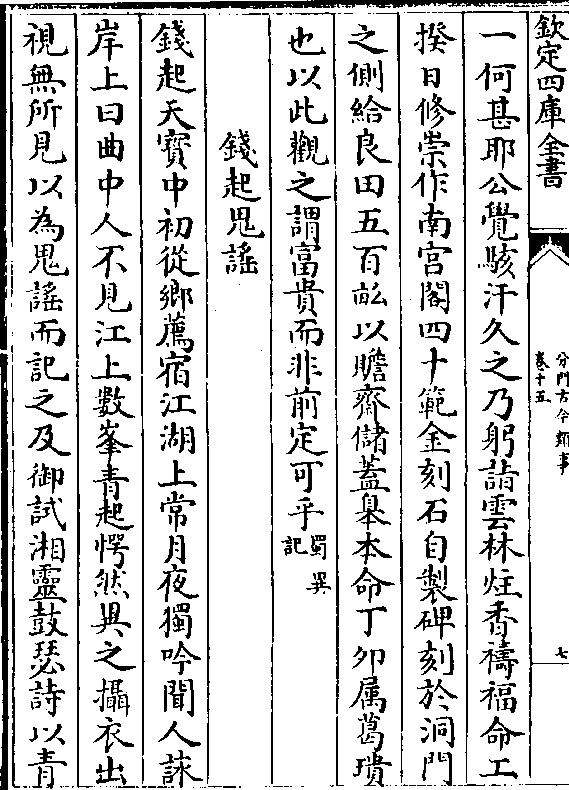 欽定四庫全書
分門古今類事
卷十五
七
一何甚耶公覺駭汗久之乃躬詣雲林炷香禱福命工
揆日修崇作南宮閣四十範金刻石自製碑刻於洞門
之側給良田五百畝以贍齋儲蓋臯本命丁夘属葛璝
也以此觀之謂富貴而非前定可乎蜀異記
錢起鬼謠
錢起天寳中初從鄉薦宿江湖上常月夜獨吟聞人詠
岸上曰曲中人不見江上數峯青起愕然異之攝衣出
視無所見以為鬼謠而記之及御試湘靈鼓瑟詩以青